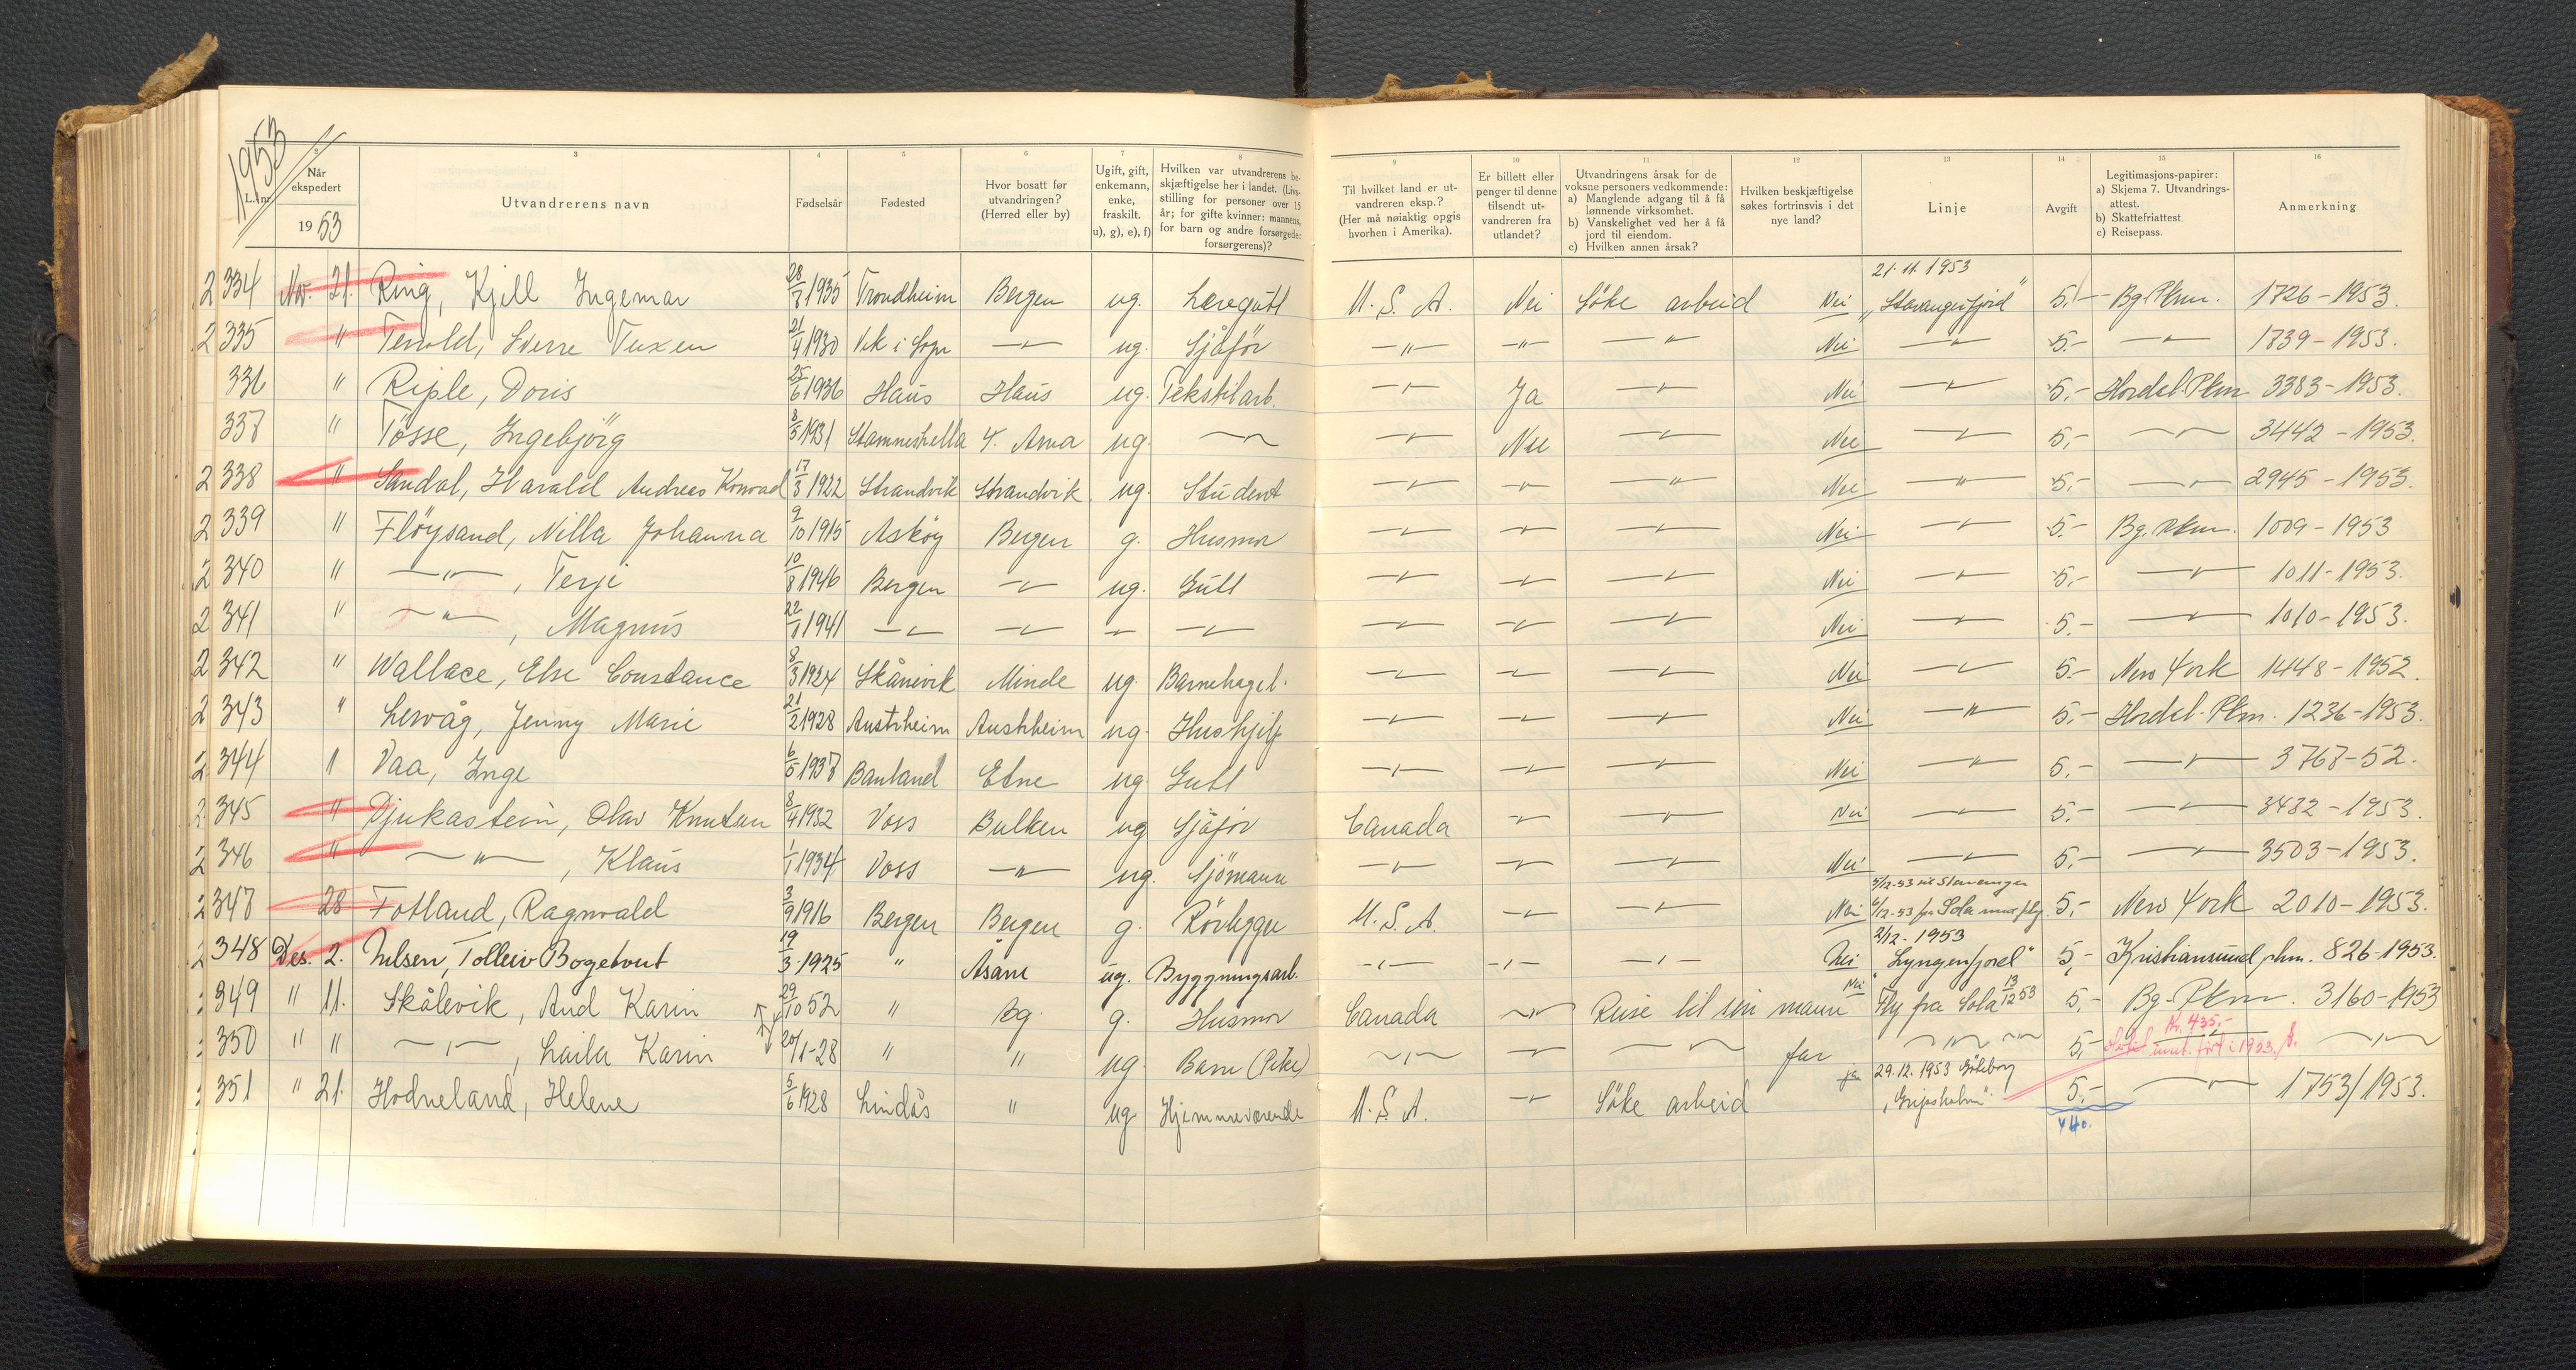 1953
L.nr.
2
Når ekspedert
1953
3
Utvandrerens navn
4
Fødselsår
5
Fødested
6
Hvor bosatt før utvandringen? (Herred eller by)
7
Ugift, gift, enkemann, enke, fraskilt. u), g), e), f)
8
Hvilken var utvandrerens beskjæftigelse her i landet. (Livsstilling for personer over 15 år; for gifte kvinner: mannens, for barn og andre forsørgede: forsørgerens)?
9
Til hvilket land er utvandreren eksp.? (Her må nøiaktig opgis hvorhen i Amerika).
10
Er billett eller penger til denne tilsendt utvandreren fra utlandet?
11
Utvandringens årsak for de voksne personers vedkommende:
a) Manglende adgang til å få lønnende virksomhet.
b) Vanskelighet ved her å få jord til eiendom.
c) Hvilken annen årsak?
12
Hvilken beskjæftigelse søkes fortrinsvis i det nye land?
13
Linje
14
Avgift
15
Legitimasjons-papirer:
a) Skjema 7. Utvandringsattest.
b) Skattefriattest.
c) Reisepass.
16
Anmerkning
21.11.1953
2 334 Nov. 21. Ring, Kjell Ingemar 28/7 1935 Trondheim Bergen ug. Læregutt U.S.A. Nei Söke arbeid Nei "Stavangerfjord" 5,- Bg. Pkm. 1726-1953.
2 335 " Tenold, Sverre Tuxen 21/4 1930 Vik i Sogn -"- ug. Sjåför -"- -"- -"- Nei -"- 5.- -"- 1739-1953.
336 " Riple, Doris 25/6 1936 Haus Haus ug. Tekstilarb. -"- Ja -"- Nei -"- 5,- Hordal. Pkm 3383-1953.
337 " Tosse, Ingebjörg 3/5 1931 Stamneshella Y. Arna ug. -"- -"- Nei -"- Nei -"- 5,- -"- 3442-1953.
2 338 " Sandal, Harald Andreas Konrad 17/3 1922 Strandvik Strandvik ug. Student -"- -"- -"- Nei -"- 5,- -"- 2945-1953.
2 339 " Flöysand, Nilla Johanna 9/10 1915 Asköy Bergen g. Husmor -"- -"- -"- Nei -"- 5.- Bg. Pkm. 1009-1953
2 340 " -"-, Terje 10/8 1946 Bergen -"- ug. Gutt -"- -"- -"- Nei -"- 5,- -"- 1011-1953.
2 341 " -"-, Magnus 22/1 1941 -"- -"- -"- -"- -"- -"- -"- Nei -"- 5.- -"- 1010-1953.
2 342 " Wallace, Else Constance 8/3 1924 Skånevik Minde ug. Barnehagel. -"- -"- -"- Nei -"- 5.- New York 1448-1952.
2 343 " Lervåg, Jenny Marie 21/2 1928 Austrheim Austrheim ug. Hushjelp -"- -"- -"- Nei -"- 5,- Hordal. Pkm. 1236-1953.
2 344 " Vaa, Inge 6/5 1937 Etne ug Gutt -"- -"- -"- Nei -"- 5,- -"- 3767-52.
2 345 " Djukastein, Olav Knutsen 8/4 1932 Voss Bulken ug Sjåför Canada -"- -"- Nei -"- 5,- -"- 3432-1953.
2 346 " -"-, Klaus 1/1 1934 Voss -"- ug. Sjömann -"- -"- -"- Nei -"- 5,- -"- 3503-1953.
5/12-53 til Stavanger
2 347 28 Fotland, Ragnvald 3/9 1916 Bergen Bergen g. Rörlegger U.S.A. -"- -"- Nei 6/12-53 fra Sola med fly. 5,- New York 2010-1953.
2/12-1953
2 348 Des. 2. Tolleiv 19/3-1925 " Åsane ug. Byggningsarb. -"- -"- -"- Nei "Lyngenfjord" 5,- Kristiansund pkm. 826-1953.
349 " 11. Skålevik, Aud Karin 29/10 52 " Bg. g. Husmor Canada -"- Reise til sin mann Nei Fly fra Sola 13/12 53 5,- Bg. Pkm. 3160-1953
Kr. 435.-
350 " " -"-, Laila Karin 20/1-28 " " ug Barn (Pike) -"- -"- -"- far -"- 5,- innt. fört i 1953. -"-
29.12.1953 Göteborg
351 " 21. Hodneland, Helene 5/6 1928 Lindås " ug Hjemmeværende U.S.A. -"- Söke arbeid "Gripsholm". 5,- -"- 1753/1953.